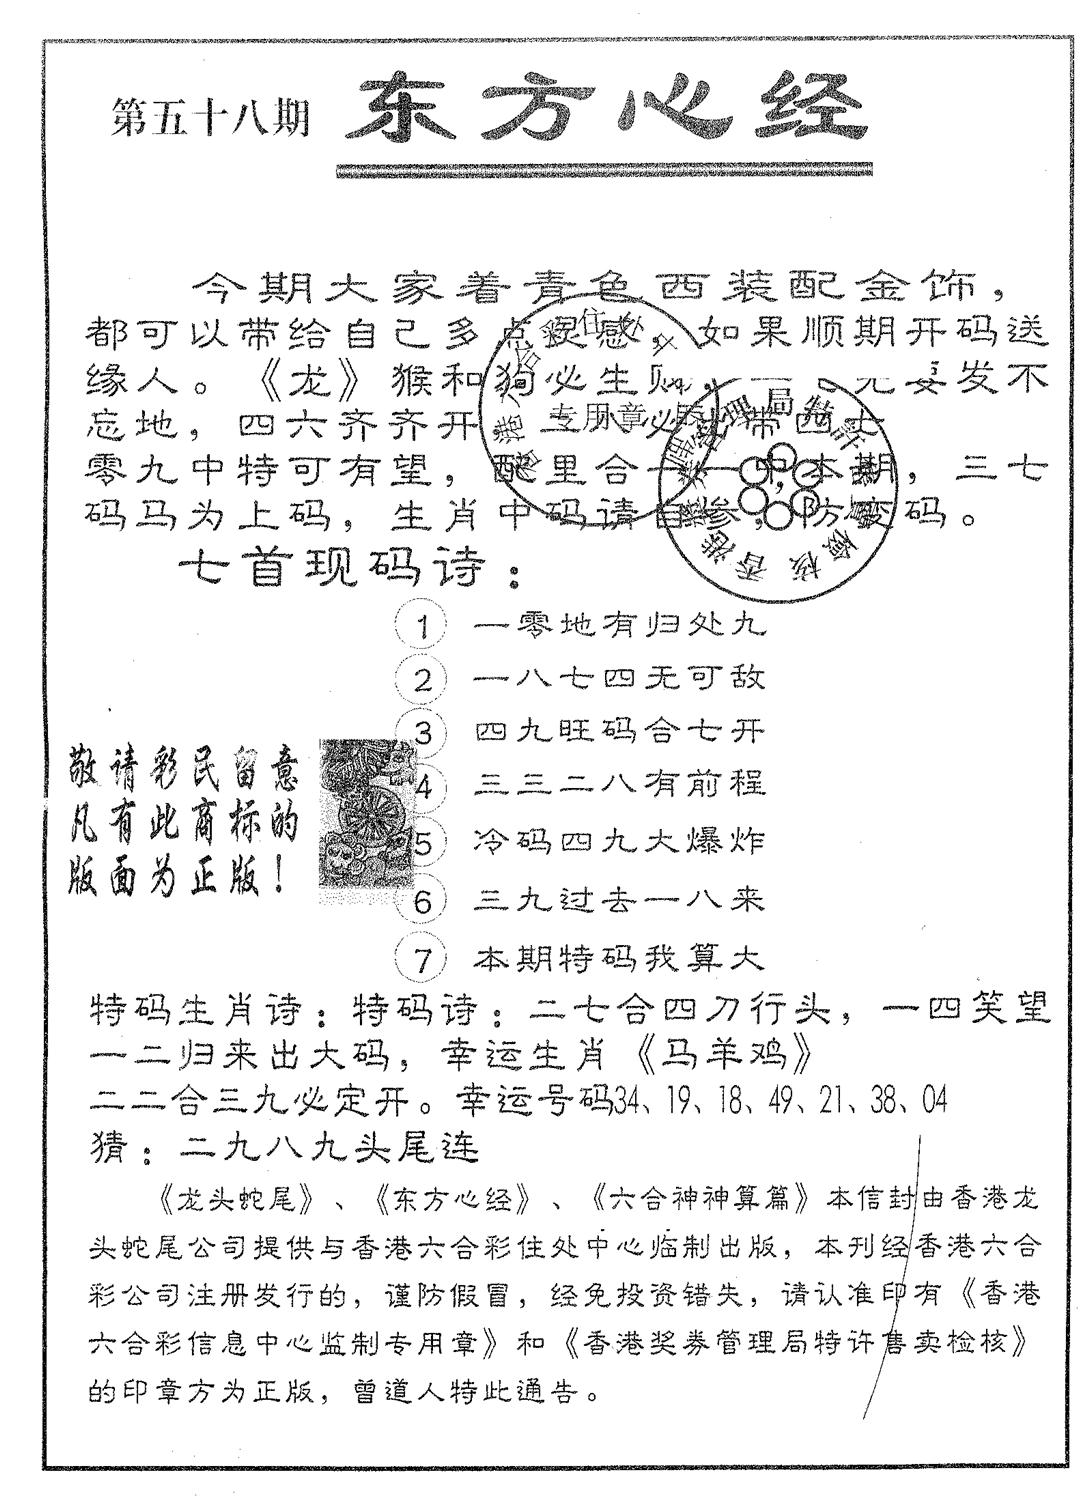 第五十八期 东方心经
今期大家着青色西装配金饰，
都可以带给自己多点灵感，如果顺期开码送
缘人。《龙》猴和狗必生财，发不
忘地，四六齐齐开 必 带四七
零九中特可有望，配里合一 中本期，三七
码马为上码，生肖中码请自参，防变码。
七首现码诗：
1 一零地有归处九
2 一八七四无可敌
3 四九旺码合七开
4 三三二八有前程
5 冷码四九大爆炸
6 三九过去一八来
7 本期特码我算大
敬请彩民留意
凡有此商标的
版面为正版！
专用章
特码生肖诗：特码诗：二七合四刀行头，一四笑望
一二归来出大码，幸运生肖《马羊鸡》
二二合三九必定开。幸运号码34、19、18、49、21、38、04
猜：二九八九头尾连
《龙头蛇尾》、《东方心经》、《六合神神算篇》本信封由香港龙
头蛇尾公司提供与香港六合彩住处中心临制出版，本刊经香港六合
彩公司注册发行的，谨防假冒，经免投资错失，请认准印有《香港
六合彩信息中心监制专用章》和《香港奖券管理局特许售卖检核》
的印章方为正版，曾道人特此通告。